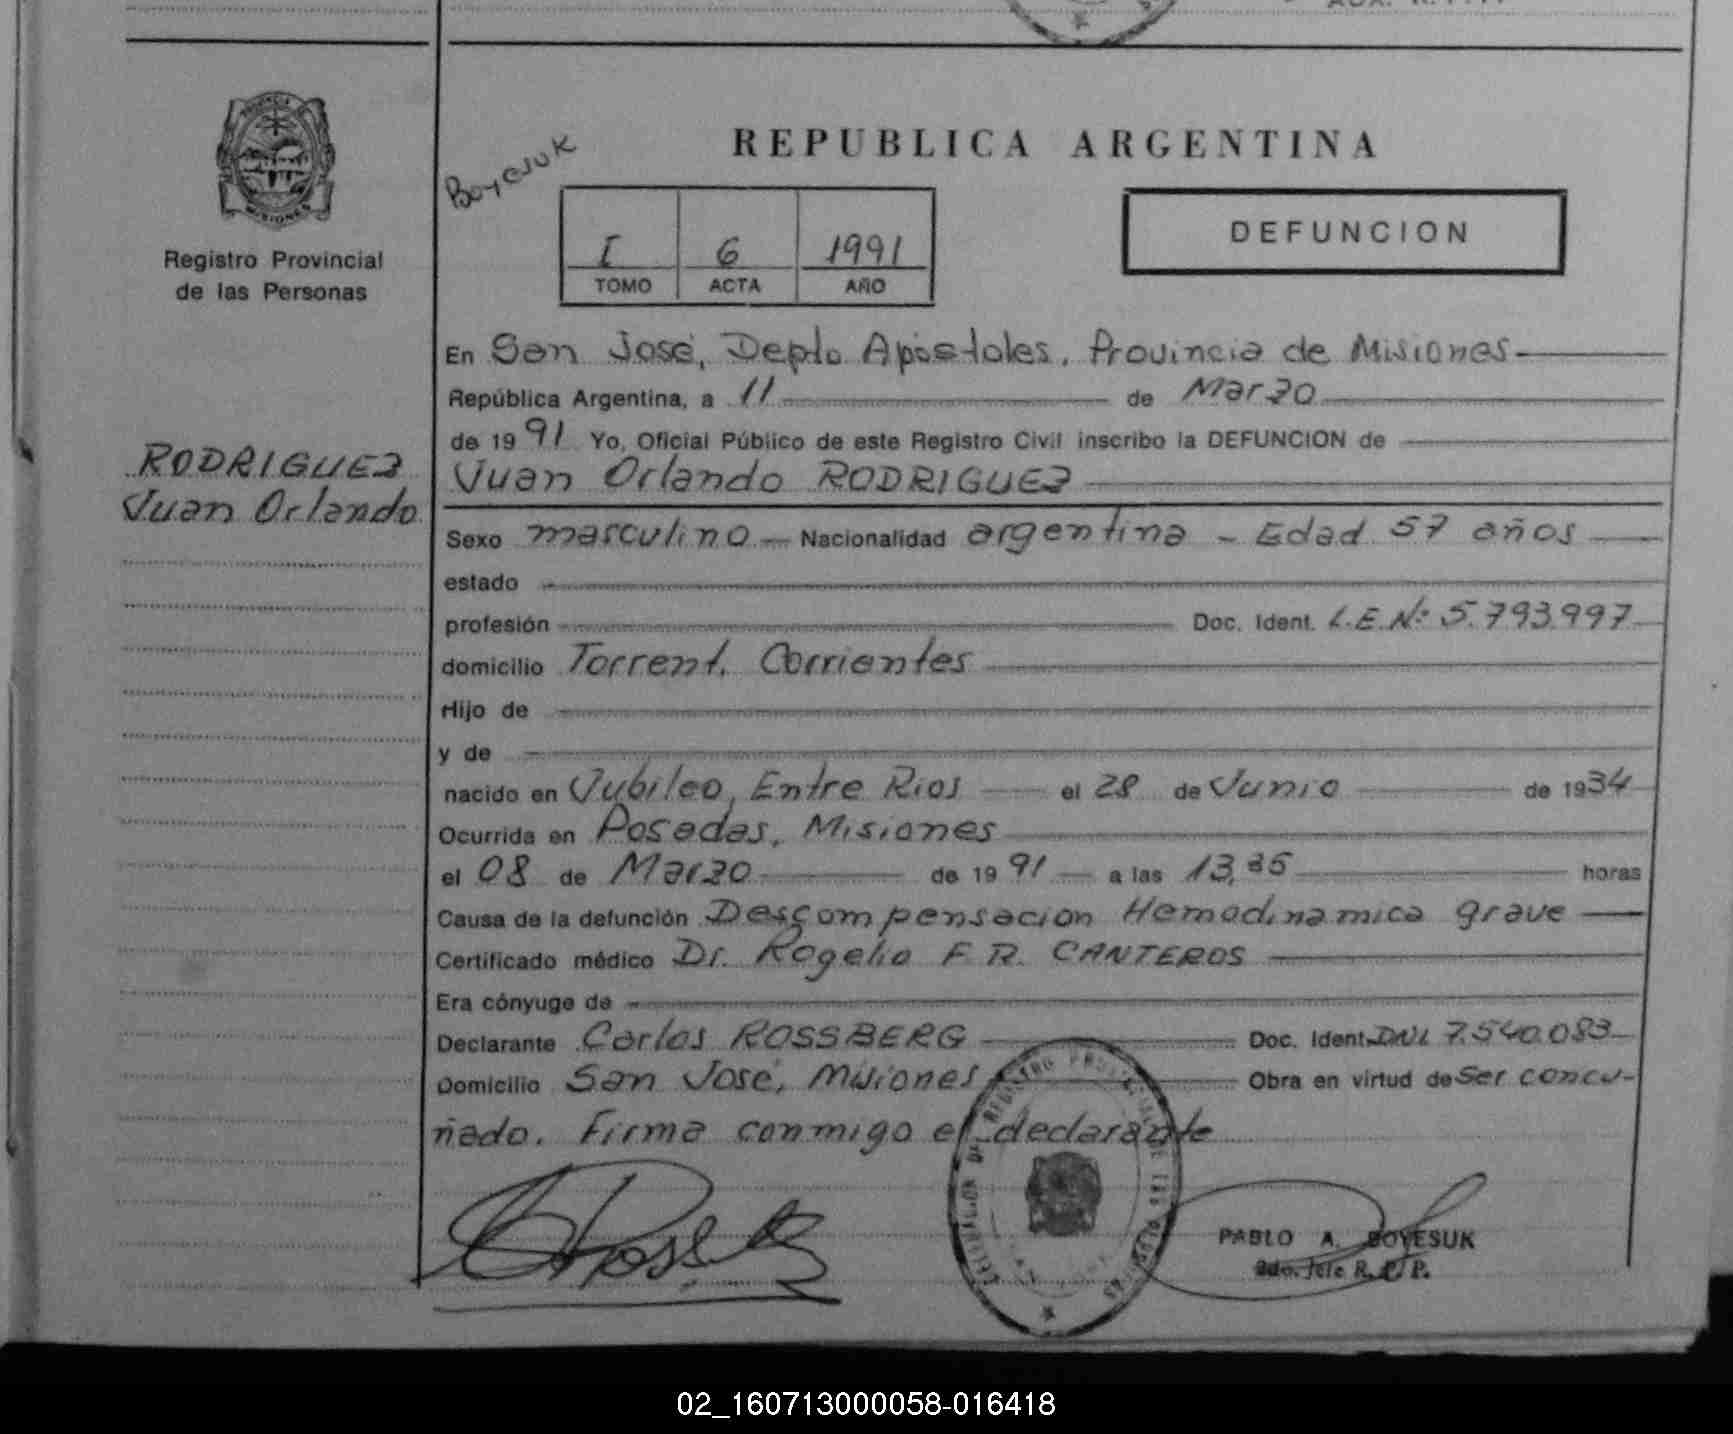 PROVINCIA
MISIONES
Registro Provincial
de las Personas
RODRIGUEZ
Juan Orlando
Boyesuk
REPUBLICA ARGENTINA
I 6 1991
TOMO ACTA AÑO
DEFUNCION
En San José, Depto Apostoles, Provincia de Misiones
República Argentina, a 11 de Marzo
de 1991 Yo, Oficial Público de este Registro Civil inscribo la DEFUNCION de
Juan Orlando RODRIGUEZ
Sexo masculino Nacionalidad argentina - Edad 57 años
estado
profesión Doc. Ident. L.E.Nº 5.793.997
domicilio Torrent, Corrientes
Hijo de
y de
nacido en Jubileo, Entre Rios el 28 de Junio de 1934
Ocurrida en Posadas, Misiones
el 08 de Marzo de 1991 a las 13,35 horas
Causa de la defunción Descompensacion Hemodinamica grave
Certificado médico Dr. Rogelio F.R. CANTEROS
Era cónyuge de
Declarante Carlos ROSSBERG Doc. Ident. DNI 7.540.083
Domicilio San José, Misiones Obra en virtud de Ser concu-
ñado. Firma conmigo el declarante
PABLO A. BOYESUK
2do. Jefe R. P. P.
02_160713000058-016418